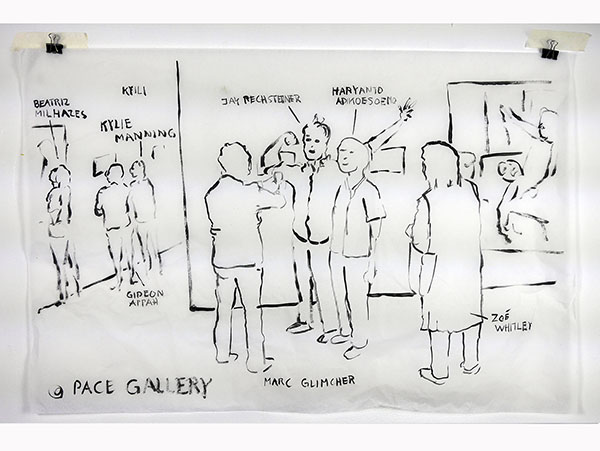 BEATRIZ
MILHAZES
KYLIE
MANNING
JAY RECHSTEINER
HARYANTO
ADIKOESOEMO
GIDEON
APPAH
ZOÉ
WHITLEY
@ PACE GALLERY
MARC GLIMCHER